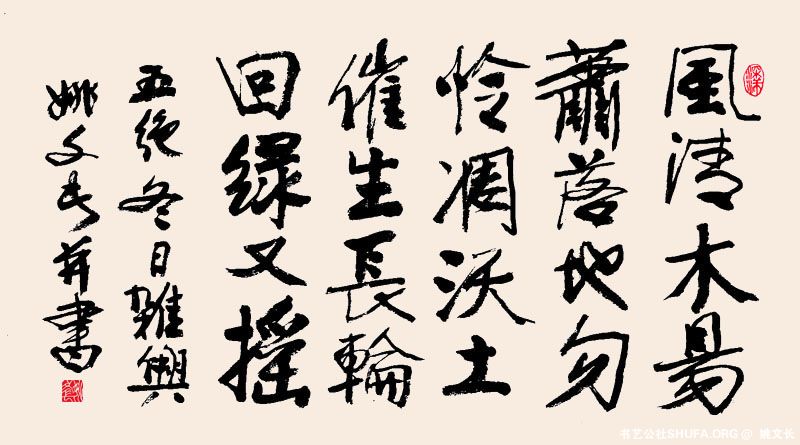 風清木易
蕭落地勿
怜凋沃土
催生長輪
回綠又摇
五絶冬日雜興
姚文长并書
书艺公社SHUFA.ORG @ 姚文长